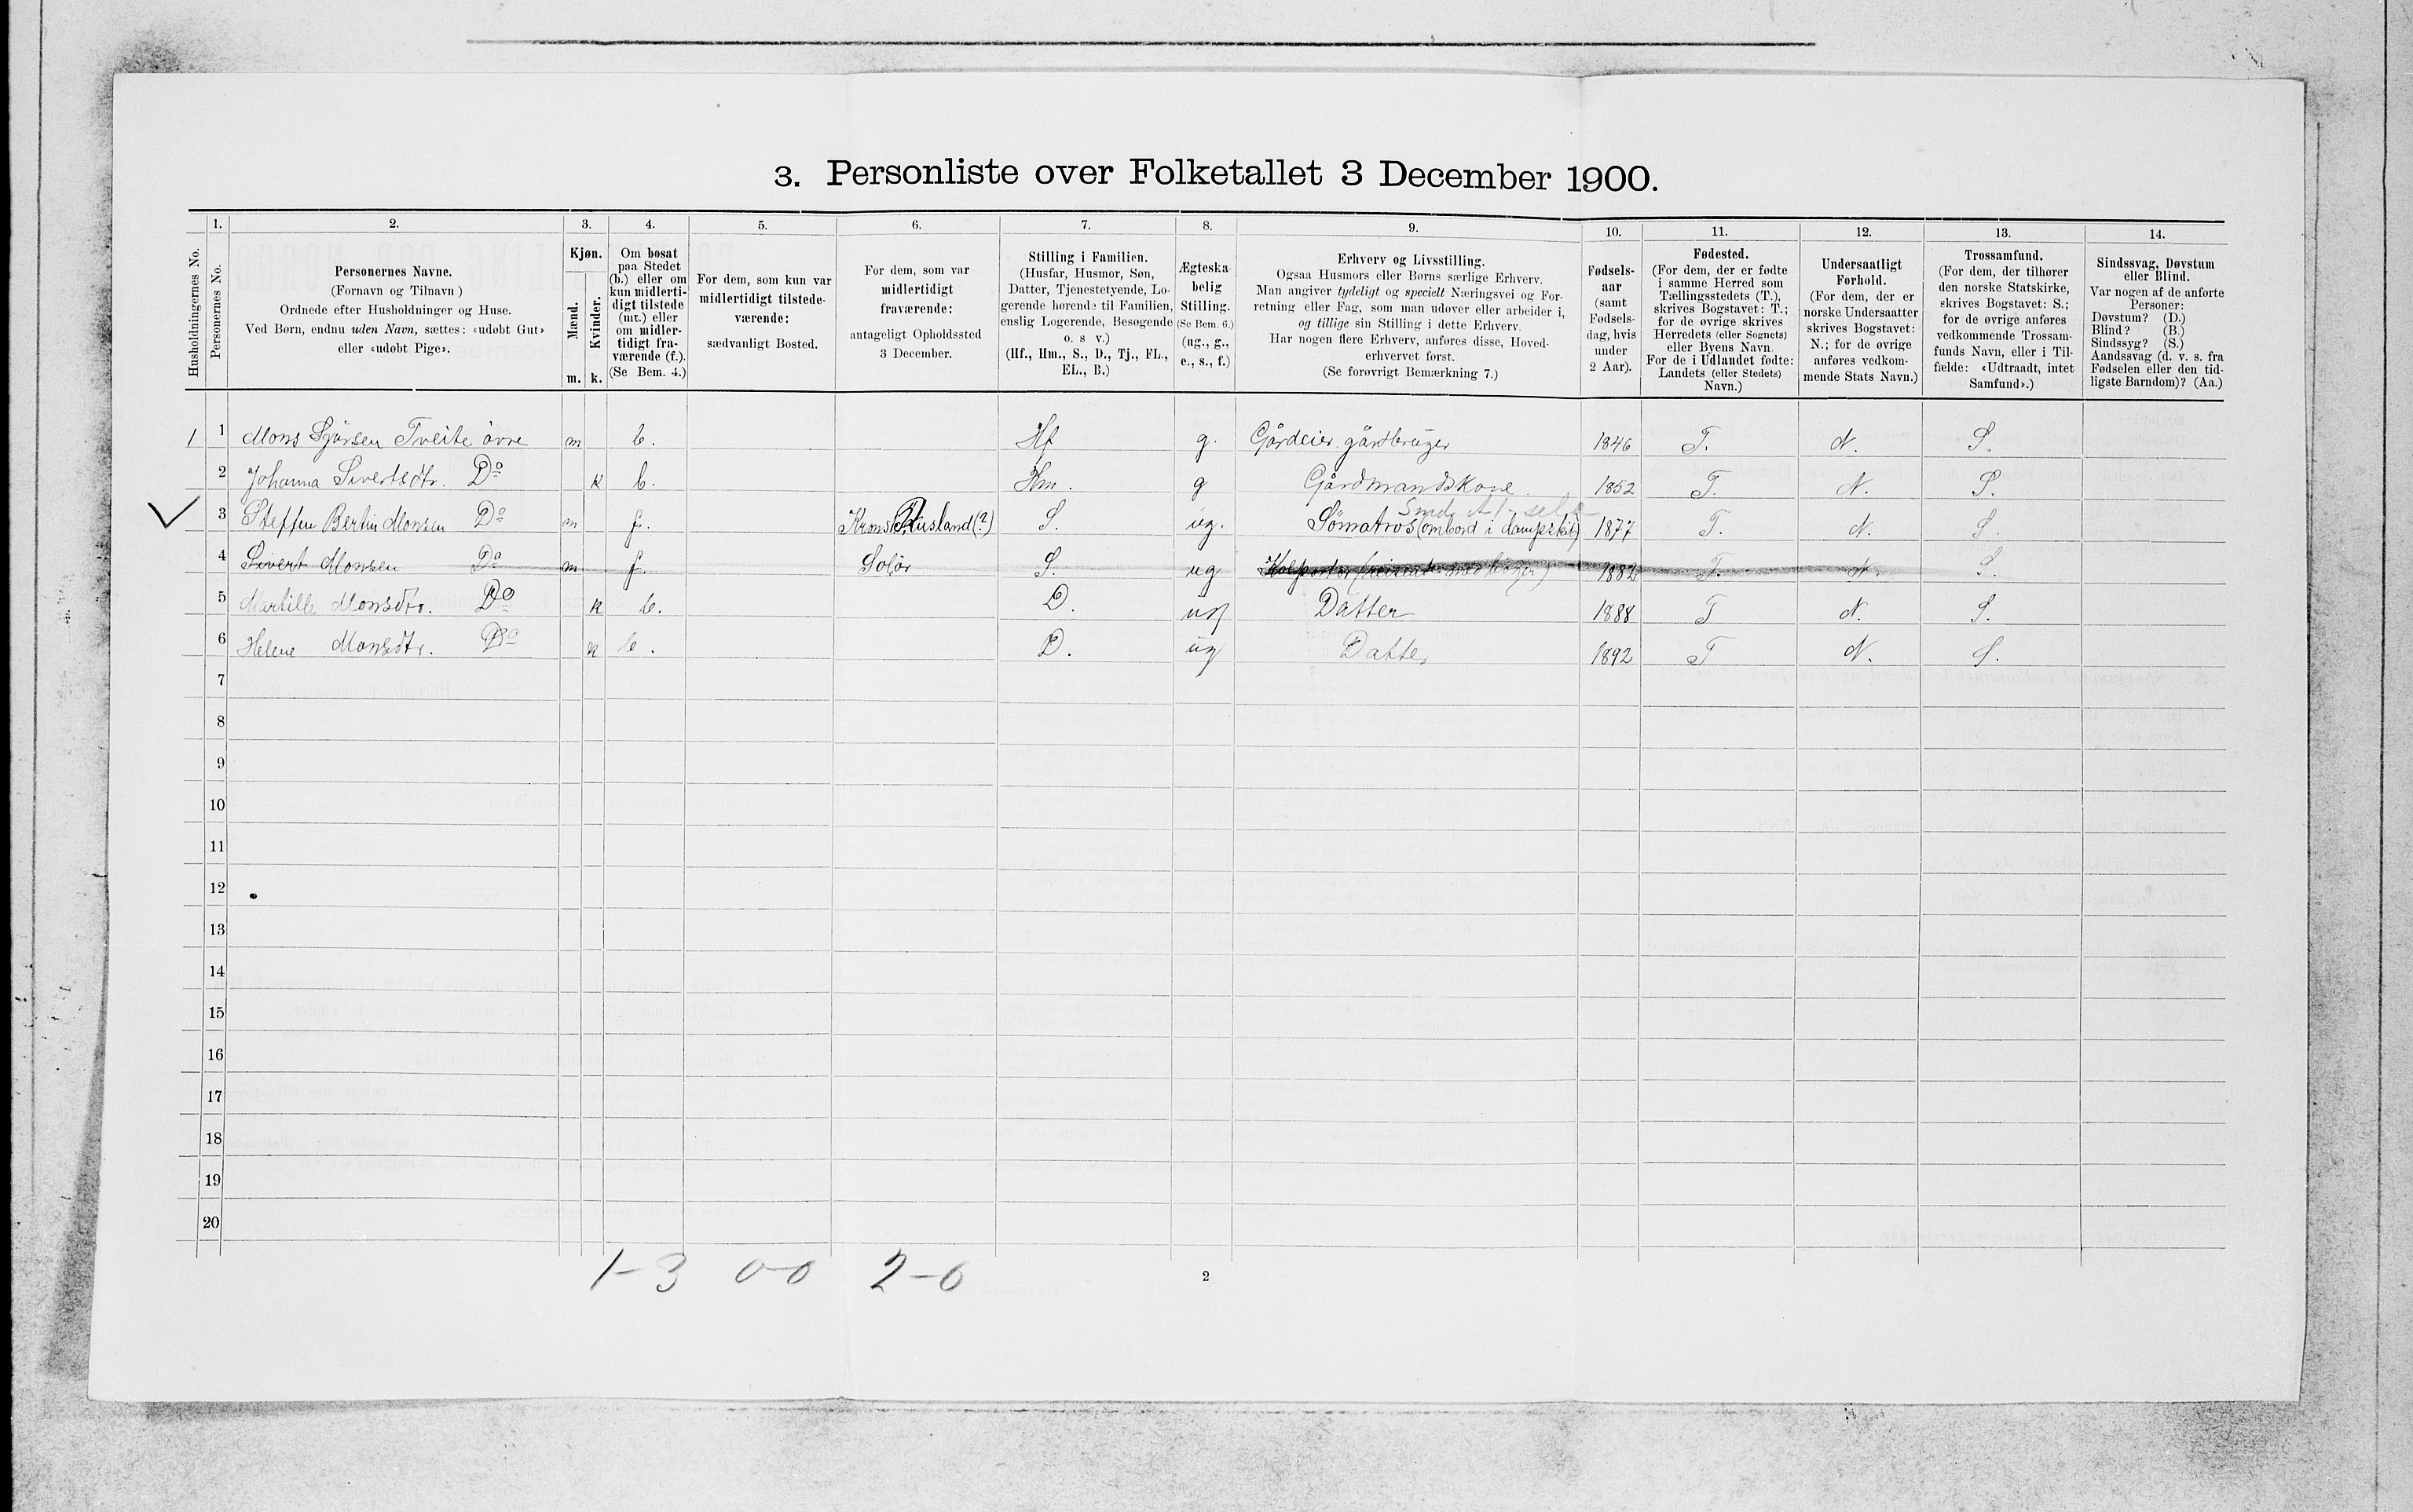 3. Personliste over Folketallet 3 December 1900.
1. 2. 3. 4. 5. 6. 7. 8. 9. 10. 11. 12. 13. 14.
Husholdningernes No.
Personernes No.
Personernes Navne.
(Fornavn og Tilnavn)
Ordnede efter Husholdninger og Huse.
Ved Børn, endnu uden Navn, sættes: «udøbt Gut»
eller «udøbt Pige».
Kjøn.
Mænd.
Kvinder.
m. k.
Om bosat
paa Stedet
(b.) eller om
kun midlerti-
digt tilstede
(mt.) eller
om midler-
tidigt fra-
værende (f.).
(Se Bem. 4.)
For dem, som kun var
midlertidigt tilstede-
værende:
sædvanligt Bosted.
For dem, som var
midlertidigt
fraværende:
antageligt Opholdssted
3 December.
Stilling i Familien.
(Husfar, Husmor, Søn,
Datter, Tjenestetyende, Lo-
gerende hørende til Familien,
enslig Logerende, Besøgende
o. s. v.)
(Hf., Hm., S., D., Tj., FL.,
EL., B.)
Ægteska-
belig
Stilling.
(Se Bem. 6.)
(ug., g.,
e., s., f.)
Erhverv og Livsstilling.
Ogsaa Husmors eller Børns særlige Erhverv.
Man angiver tydeligt og specielt Næringsvei og For-
retning eller Fag, som man udøver eller arbeider i,
og tillige sin Stilling i dette Erhverv.
Har nogen flere Erhverv, anføres disse, Hoved-
erhvervet først.
(Se forøvrigt Bemærkning 7.)
Fødsels-
aar
(samt
Fødsels-
dag, hvis
under
2 Aar).
Fødested.
(For dem, der er fødte
i samme Herred som
Tællingsstedets (T.),
skrives Bogstavet: T.;
for de øvrige skrives
Herredets (eller Sognets)
eller Byens Navn.
For de i Udlandet fødte:
Landets (eller Stedets)
Navn.)
Undersaatligt
Forhold.
(For dem, der er
norske Undersaatter
skrives Bogstavet:
N.; for de øvrige
anføres vedkom-
mende Stats Navn.)
Trossamfund.
(For dem, der tilhører
den norske Statskirke,
skrives Bogstavet: S.;
for de øvrige anføres
vedkommende Trossam-
funds Navn, eller i Til-
fælde: «Udtraadt, intet
Samfund».)
Sindssvag, Døvstum
eller Blind.
Var nogen af de anførte
Personer:
Døvstum? (D.)
Blind? (B.)
Sindssyg? (S.)
Aandssvag (d. v. s. fra
Fødselen eller den tid-
ligste Barndom)? (Aa.)
1 1 Mons Sjursen Tveite övre m b. Hf g. Gårdeier, gårdbruger 1846 T. N. S.
2 Johanna Sivertsdtr. Do k b. Hm. g Gårdmandskone. 1852 T. N. S.
3 Steffen Bertin Monsen Do m f. Rusland(?) S. ug. Sömatros (ombord i dampskib) 1877 T. N. S.
4 Sivert Monsen Do m f. Solör S. ug 1882 T. N. S.
5 Martille Monsdtr. Do k b. D. ug Datter 1888 T N. S.
6 Helene Monsdtr. Do k b. D. ug Datter 1892 T N. S.
7
8
9
10
11
12
13
14
15
16
17
18
19
20
1-3 0-0 2-0
2